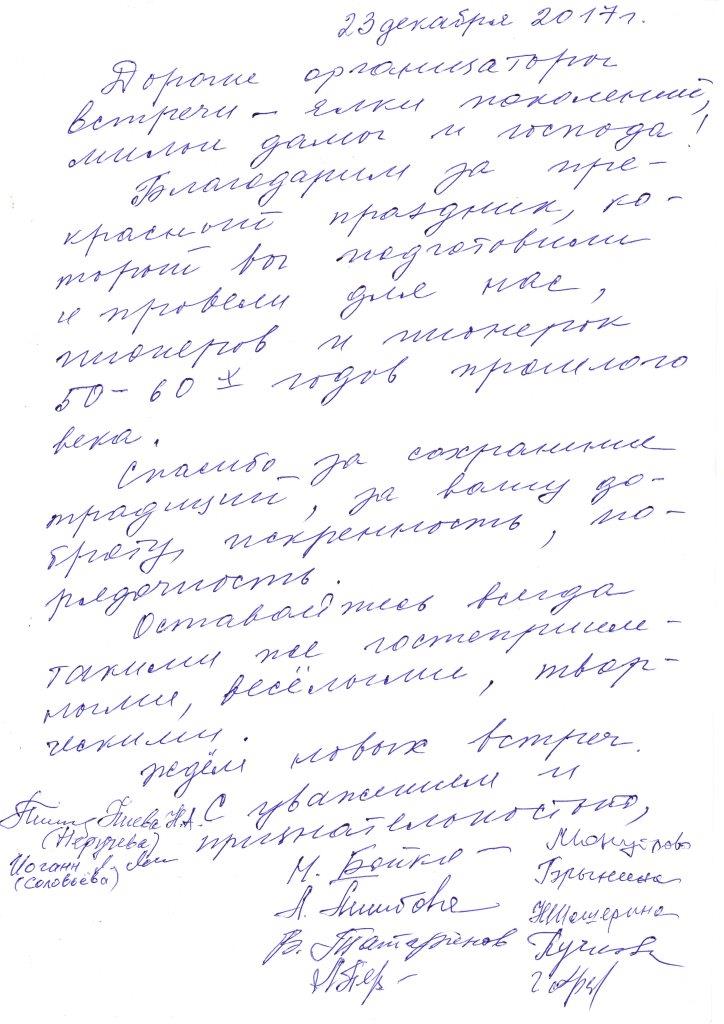 23 декабря 2017г.
Дорогие организаторы
встречи – ёлки поколений,
милые дамы и господа!
Благодарим за пре-
красный праздник, ко-
торый вы подготовили
и провели для нас,
пионеров и пионерок
50-60х годов прошлого
века.
Спасибо за сохранение
традиций, за вашу до-
броту, искренность, по-
рядочность.
Оставайтесь всегда
такими же гостеприим-
ными, весёлыми, твор-
ческими.
Ждём новых встреч.
С уважением и
признательностью,
(Неручева)
Иоганн
(Соловьёва)
М. Бойко –
Брынина
Н Шатерина
В. Татаринов